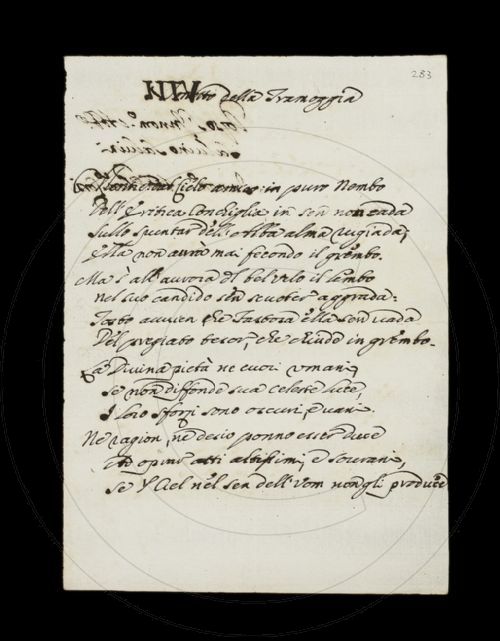 283
della Tramoggia
Cielo amico in puro Nembo
Dell' Eritrea Conchiglia in sen non cada
Sullo spuntar dell' Alba alma rugiada,
Ella non avrà mai fecondo il grembo.
Ma s' all' aurora del bel velo il lembo
nel suo candido sen scuoter aggrada:
Tosto avvien che ella sen vada
Del pregiato tesor, che chiude in grembo.
La Divina pietà ne cuori umani
se non diffonde sua celeste luce,
I loro sforzi sono oscuri, e vani.
Ne ragion, ne desio ponno esser duce
Ad oprar atti altissimi, e sovrani,
se 'l Ciel nel sen dell' Uom non gli produce